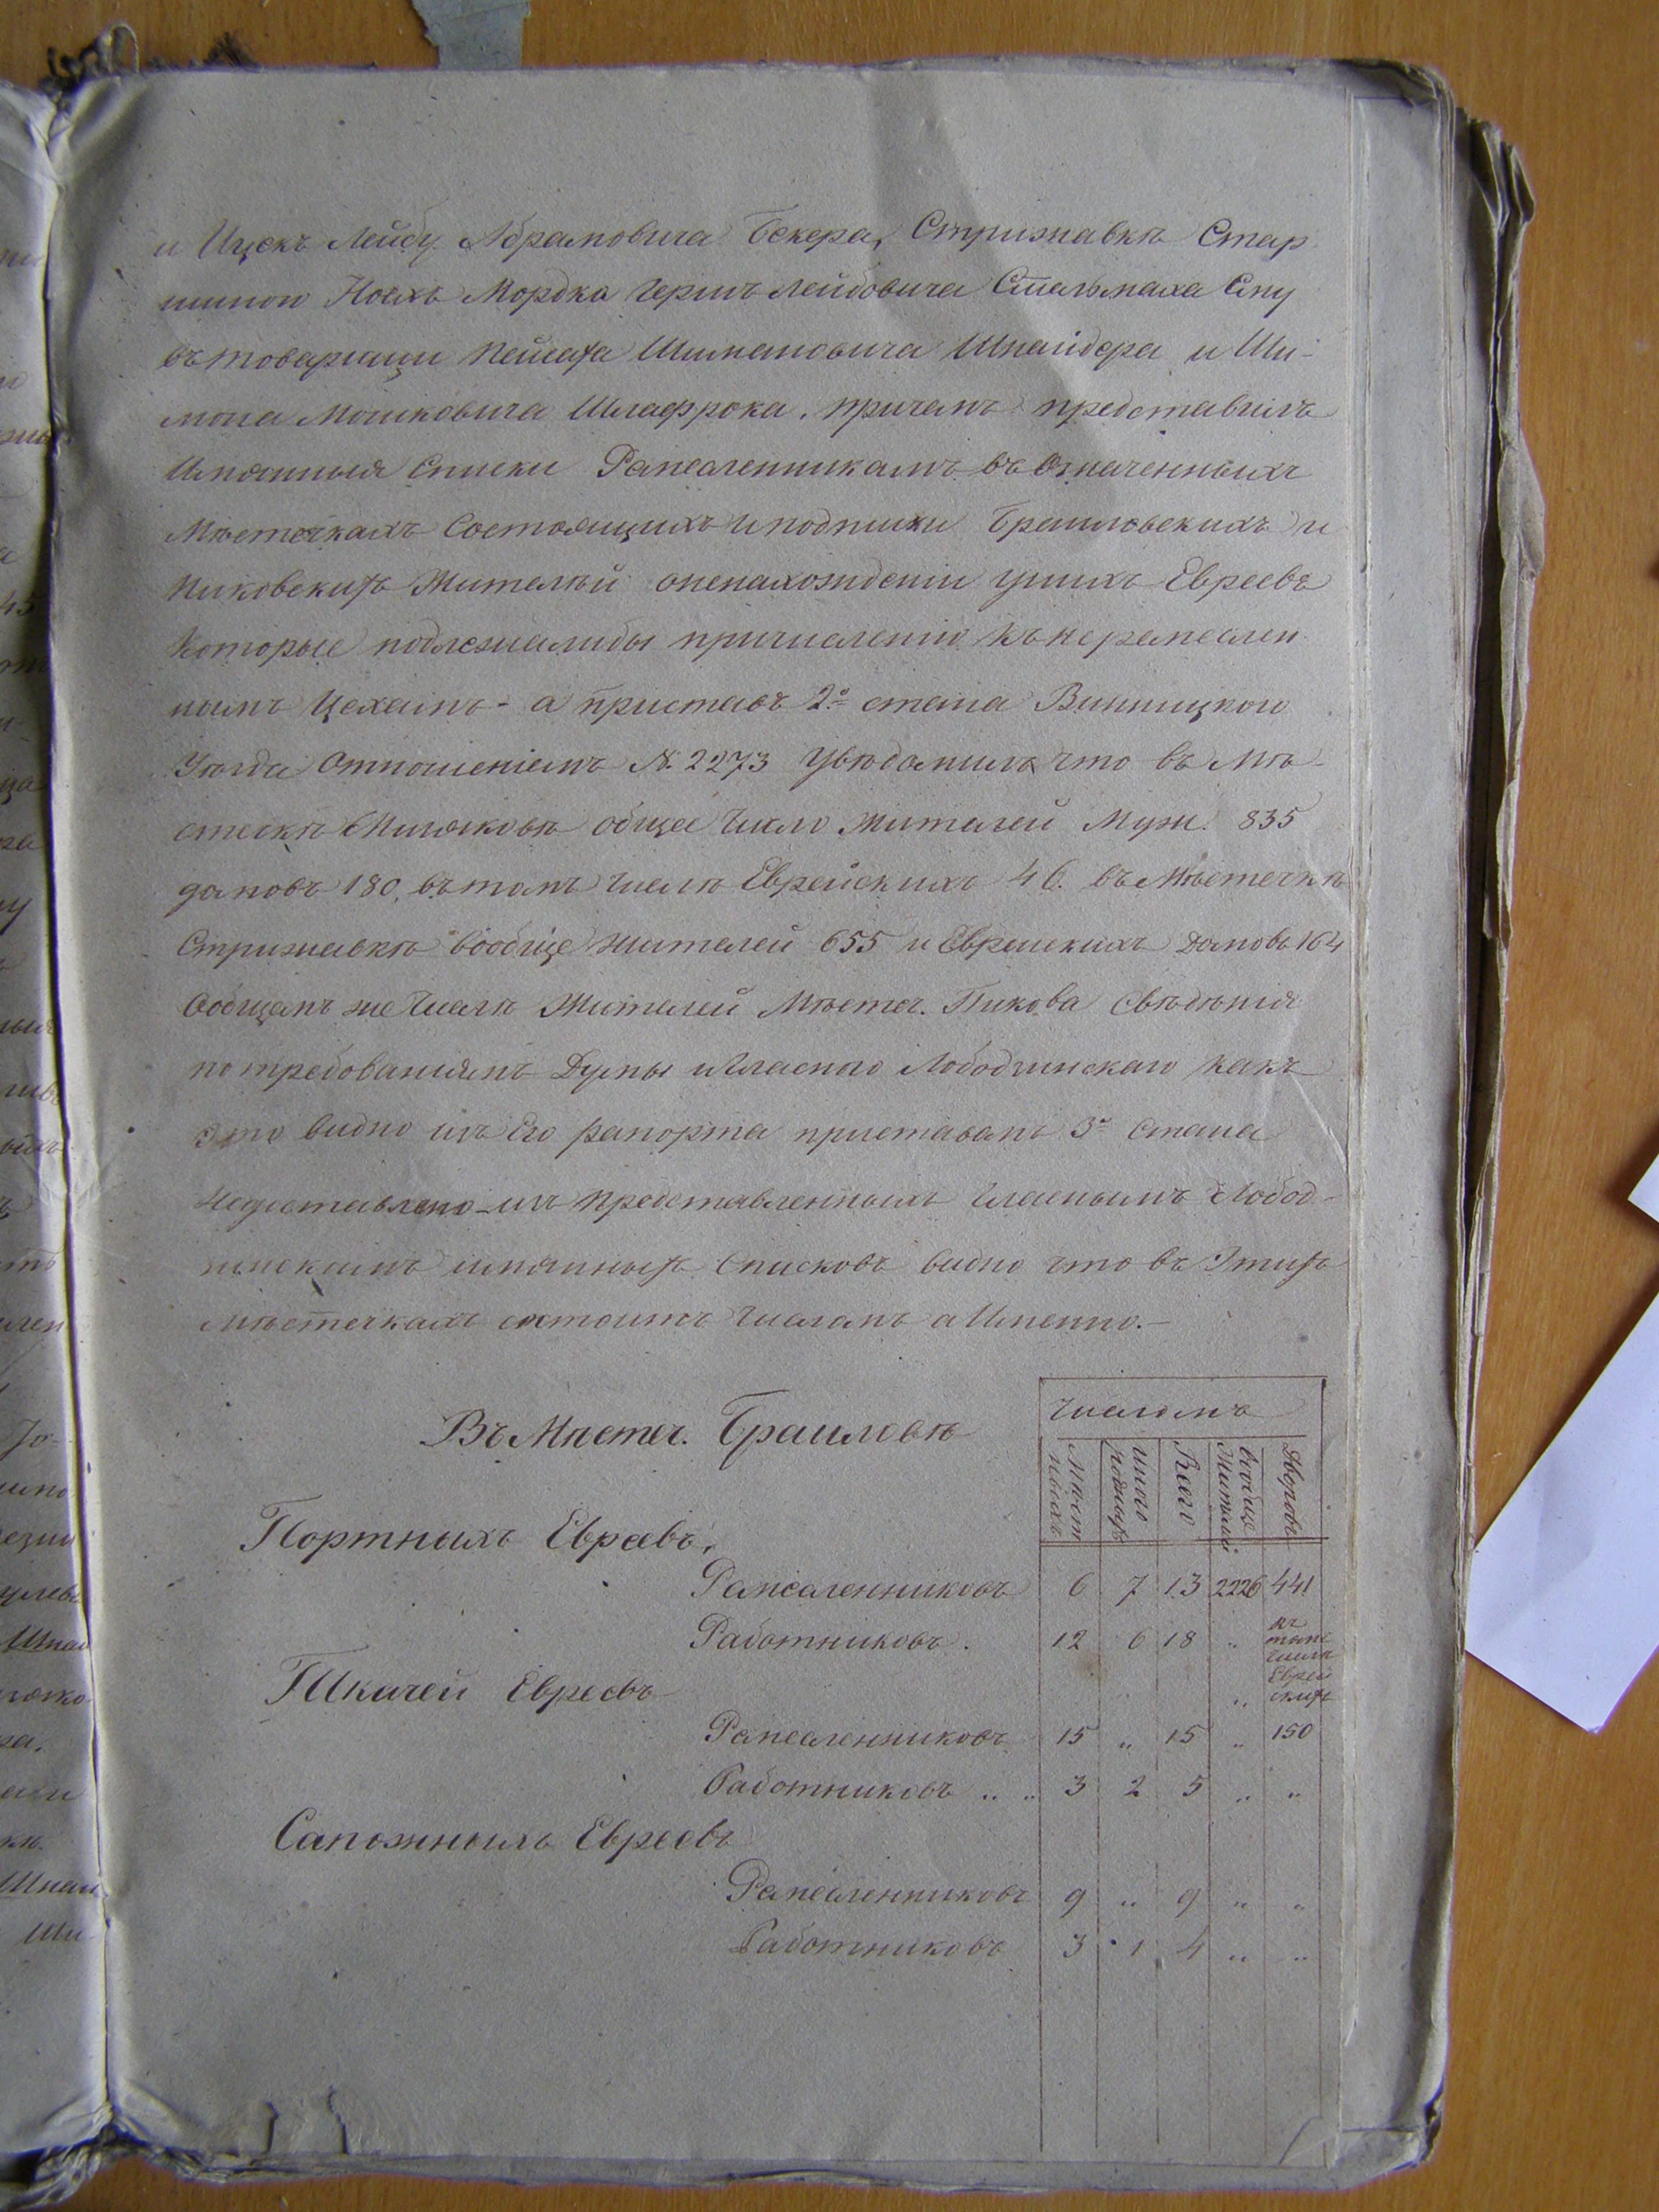 и Ицекъ Лейбу Абрамовича Бекера, Стрижавкѣ Стар
шиною Мордка Герша Лейбовича Стельмаха Ему
въ товарищи Пейсаха Шимановича Шнайдера и Ши-
мона Мошковича Шлафрока. причемъ представилъ
Имянныя Списки Ремесленникамъ въ Означенныхъ
Мѣстечкахъ Состоящихъ и подписки Браиловскихъ и
Пиковскихъ Жителѣй оненахожденіи унихъ Евреевъ
которые подлежалибы причисленію къ неремеслен
нымъ Цехамъ - а приставъ 2го стана Винницкого
Уѣзда Отношеніемъ № 2273 Увѣдомилъ что въ Мѣ-
стечкѣ общее число жителей Муж. 835
домовъ 180, въ томъ числѣ Еврейскихъ 46. въ Мѣстечкѣ
Стрижавкѣ вообще жителей 655 и Еврейскихъ домовъ 164
Ообщемъ же числѣ Жителей Мѣстеч. Пикова Свѣдѣнія
по требованіямъ Думы и Гласного Лободзинскаго какъ
это видно изъ Его рапорта приставомъ 3го Стана
недоставлено - изъ представленныхъ Гласнымъ Лобод-
зинскимъ имянныхъ Списковъ видно что въ Этихъ
мѣстечкахъ состоитъ числомъ а Именно.-
Въ Мѣстеч. Браиловѣ
Числомъ
Мѣст
ныхъ
иного
родныхъ
Всего
вообще
Жителей
Дворовъ
Портныхъ Евреевъ,
Ремесленниковъ 6 7 13 2226 441
Работниковъ. 12 6 18 „ въ
томъ
числѣ
Еврей
скихъ
Ткачей Евреевъ „
Ремесленниковъ 15 „ 15 „ 150
Работниковъ „ „ 3 2 5 „ „
Сапожныхъ Евреевъ
Ремесленниковъ 9 „ 9 „ „
Работниковъ 3 1 4 „ „